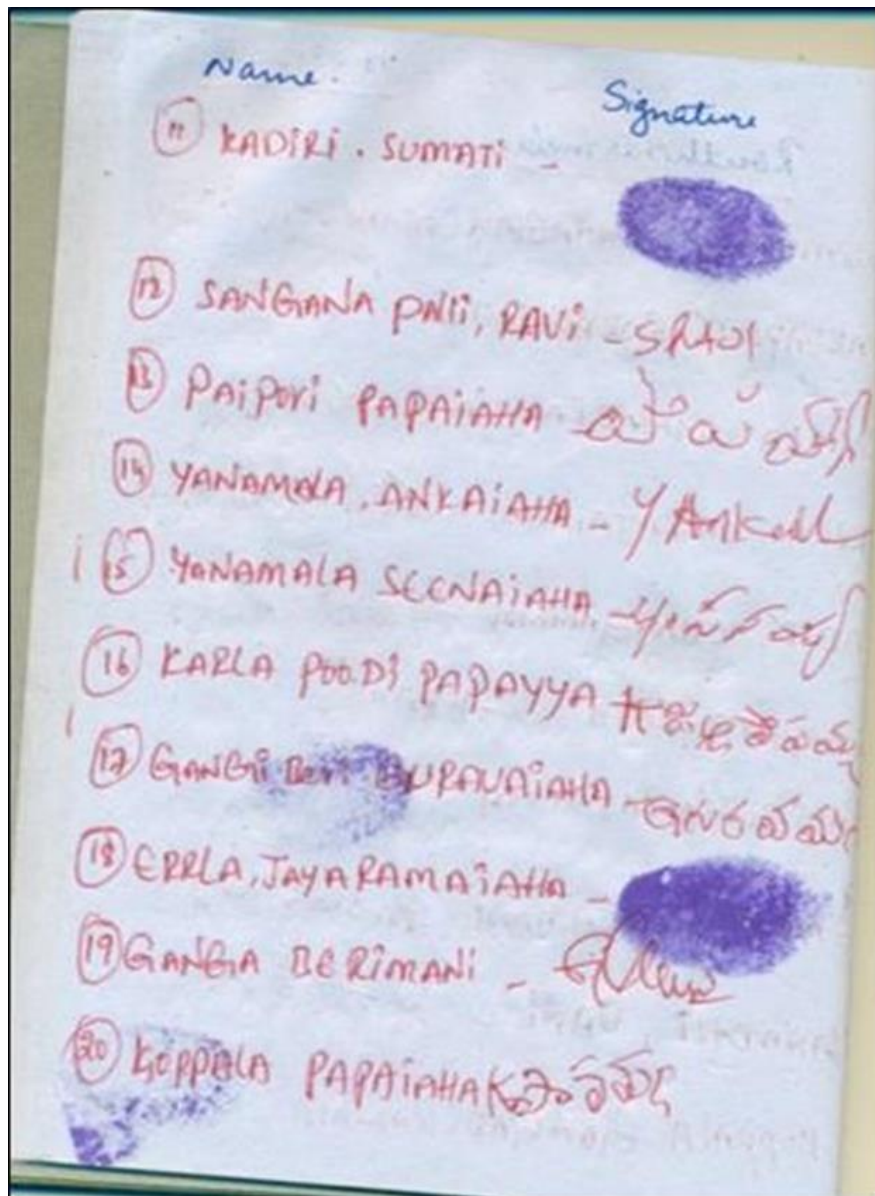 Name. Signature
11 KADIRI. SUMATI -
12 SANGANA PALli, RAVI - S RAVI
13 PAIPORI PAPAIAHA -
14 YANAMALA. ANKAIAHA - Y Ankaiah
15 YANAMALA SEENAIAHA -
16 KARLA POODI PAPAYYA
17 GANGI BERI BURAVAIAHA -
18 ERRLA, JAYARAMAIAHA -
19 GANGA BERIMANI -
20 KOPPALA PAPAIAHA